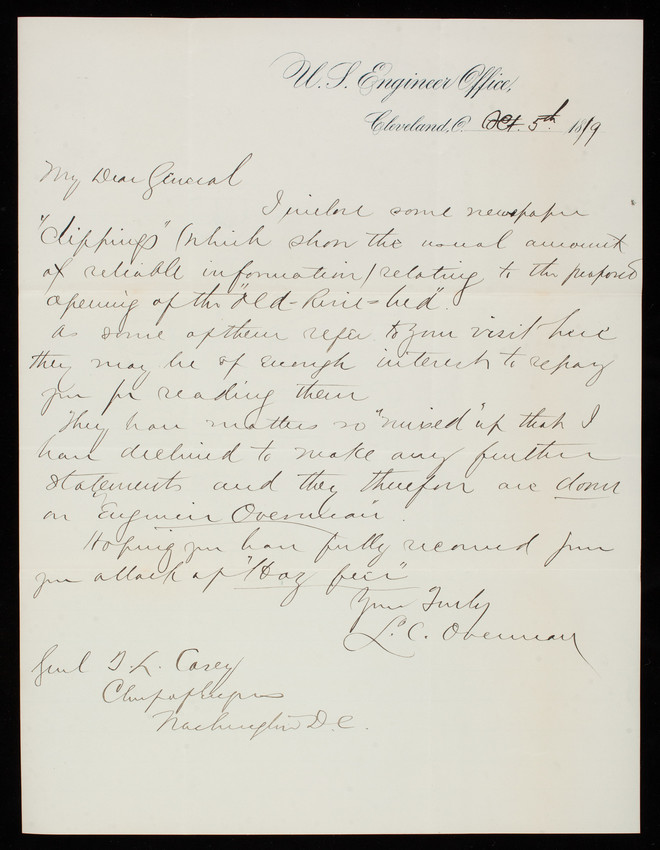 U. S. Engineer Office,
Cleveland, O. Oct. 5th 1889
My Dear General
I inclose some newspaper
"clippings" (which show the usual amount
of reliable information) relating to the proposed
opening of the "old-River-bed".
As some of them refer to your visit here
they may be of enough interest to repay
you for reading them
They have matters so "mixed" up that I
have declined to make any further
statements and they therefore are down
on "Engineer Overman".
Hoping you have fully recovered from
your attack of "Hay fever"
Yours Truly
L. C. Overman
Genl T. L. Casey
Chief of Engrs
Washington D.C.